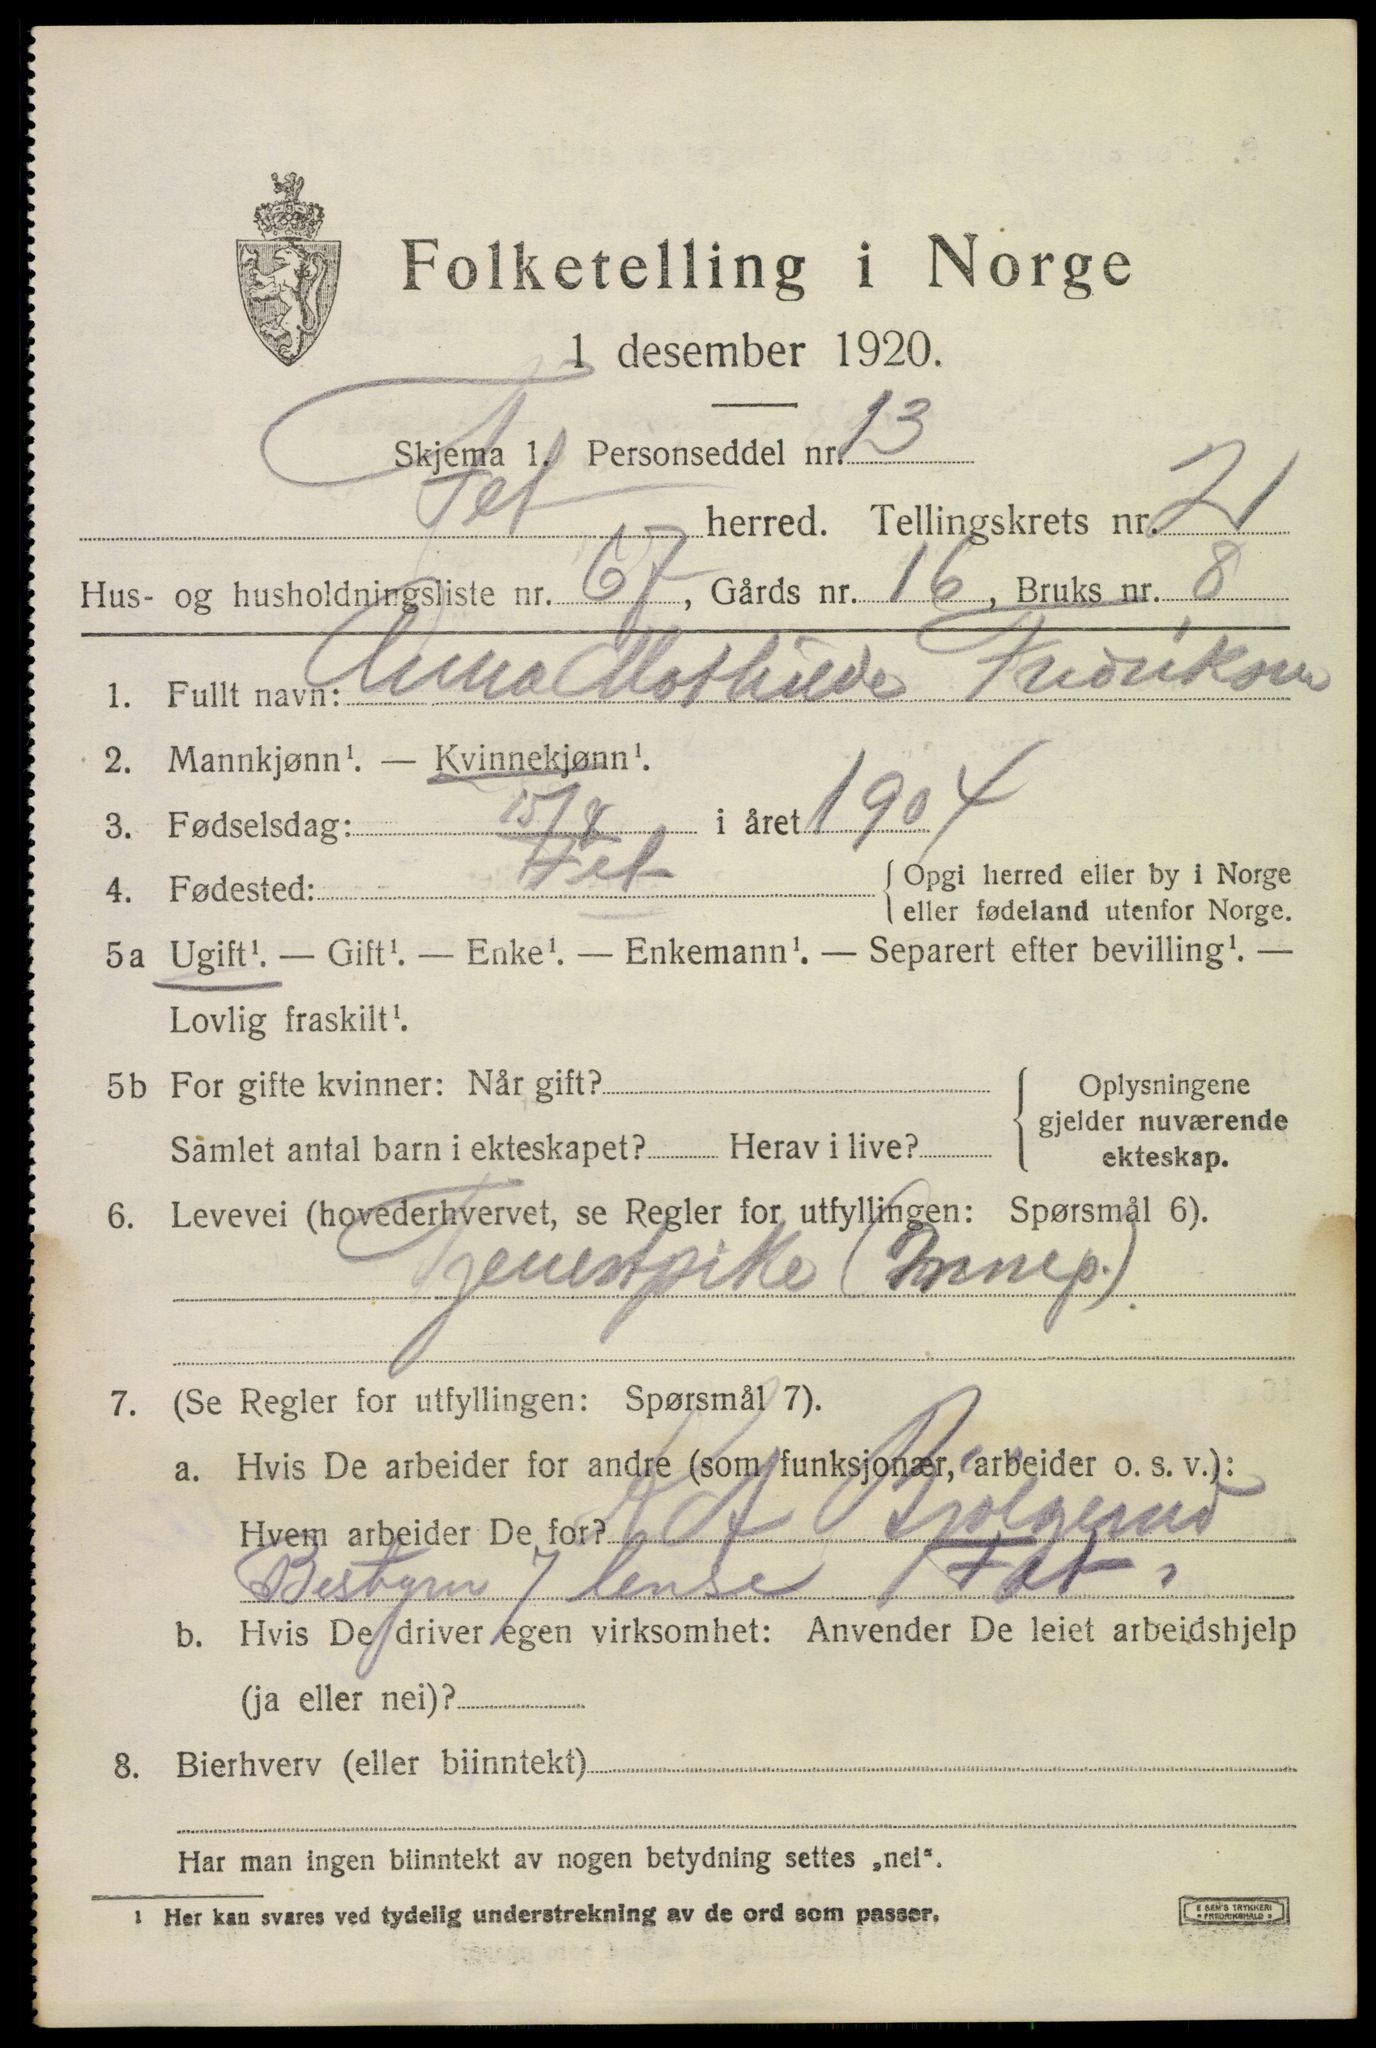 Folketelling i Norge
1 desember 1920.
Skjema 1. Personseddel nr. 13
Fet herred. Tellingskrets nr. 21
Hus- og husholdningsliste nr. 67, Gårds nr. 16, Bruks nr. 8
1. Fullt navn: Anna Mathilde Fredriksen
2. Mannkjønn¹. — Kvinnekjønn¹.
3. Fødselsdag: 15/8 i året 1904
4. Fødested: Fet { Opgi herred eller by i Norge
eller fødeland utenfor Norge.
5a Ugift¹. — Gift¹. — Enke¹. — Enkemann¹. — Separert efter bevilling¹. —
Lovlig fraskilt¹.
5b For gifte kvinner: Når gift?
Samlet antal barn i ekteskapet? Herav i live?
Oplysningene
gjelder nuværende
ekteskap.
6. Levevei (hovederhvervet, se Regler for utfyllingen: Spørsmål 6).
Tjenestpike (Innep.)
7. (Se Regler for utfyllingen: Spørsmål 7).
a. Hvis De arbeider for andre (som funksjonær, arbeider o. s. v.):
Hvem arbeider De for?
lense Fet
b. Hvis De driver egen virksomhet: Anvender De leiet arbeidshjelp
(ja eller nei)?
8. Bierhverv (eller biinntekt)
Har man ingen biinntekt av nogen betydning settes „nei“.
1 Her kan svares ved tydelig understrekning av de ord som passer.
E SEM'S TRYKKERI
FREDRIKSHALD